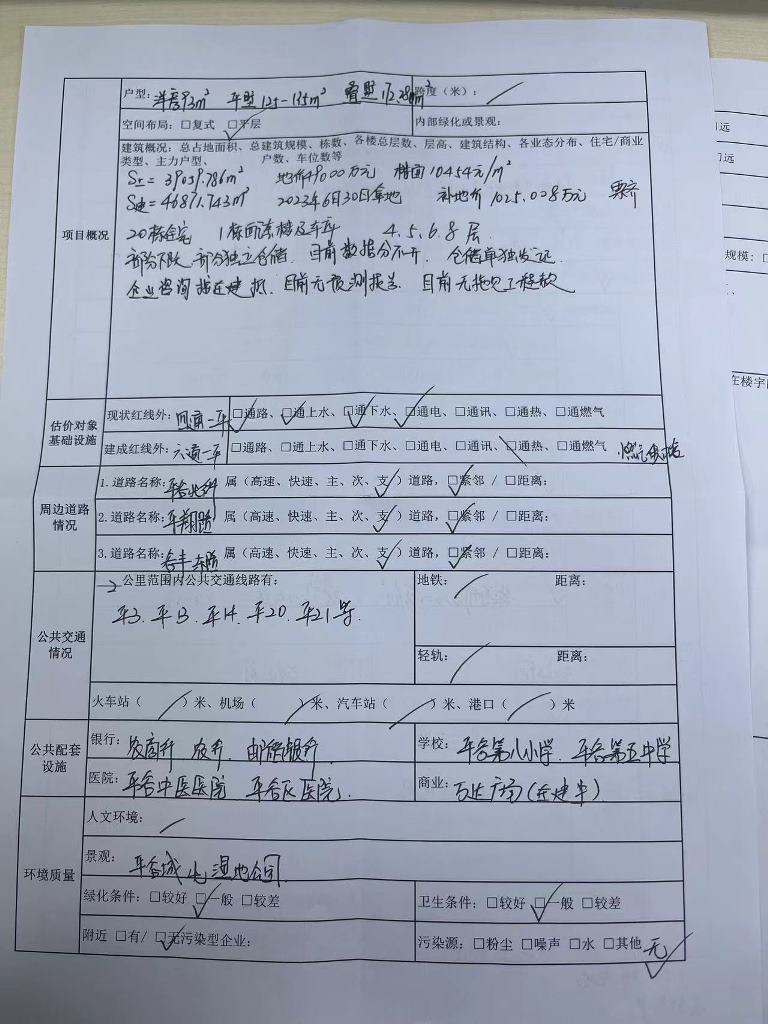 户型：洋房93m² 平墅125-135m² 叠墅 跨度（米）：
空间布局：□复式 □平层 内部绿化或景观：
项目概况
建筑概况：总占地面积、总建筑规模、栋数、各楼总层数、层高、建筑结构、各业态分布、住宅/商业
类型、主力户型、 户数、车位数等
S土=39059.786m² 地价49000万元 楼面10454元/m²
S建=46871.743m² 2023年6月30日拿地 补地价1025.028万元
20栋住宅 1栋 及车库 4.5.6.8层
部分下跃 部分独立仓储 目前数据分不开 仓储单独发证
企业咨询 在建 目前无预测报告 目前无拖欠工程款
估价对象
基础设施
现状红线外：四通一平 □通路、□通上水、□通下水、□通电、□通讯、□通热、□通燃气
建成红线外：六通一平 □通路、□通上水、□通下水、□通电、□通讯、□通热、□通燃气
周边道路
情况
1.道路名称： 属（高速、快速、主、次、支）道路，□紧邻 / □距离：
2.道路名称：平翔路 属（高速、快速、主、次、支）道路，□紧邻 / □距离：
3.道路名称：谷丰东路 属（高速、快速、主、次、支）道路，□紧邻 / □距离：
公共交通
情况
2公里范围内公共交通线路有： 地铁： 距离：
平3.平13.平14.平20.平21等.
轻轨： 距离：
火车站（ ）米、机场（ ）米、汽车站（ ）米、港口（ ）米
公共配套
设施
银行：农商行 农行 邮储银行 学校：平谷第八小学. 平谷第五中学
医院：平谷中医医院 平谷区医院. 商业：万达广场（在建中）
环境质量
人文环境：
景观：平谷城北湿地公园
绿化条件：□较好 □一般 □较差 卫生条件：□较好 □一般 □较差
附近 □有/ □无污染型企业： 污染源：□粉尘 □噪声 □水 □其他 无
规模：□
在楼宇